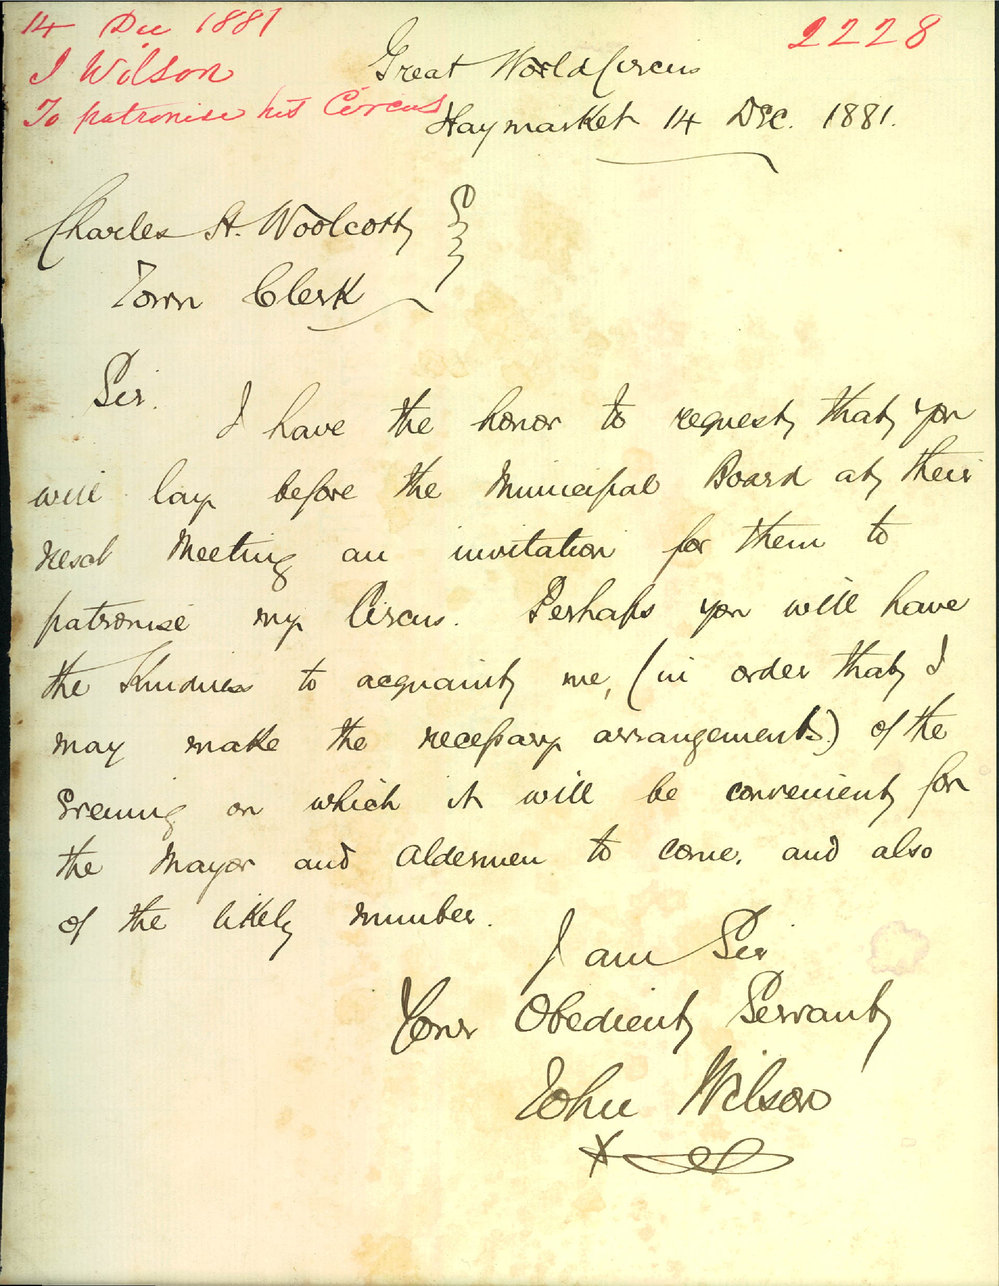 14 Dec 1881
J Wilson
To patronise his Circus
2228
Great World Circus
Haymarket 14 Dec. 1881.
Charles H. Woolcott
Town Clerk
Sir.
I have the honor to request that you
will lay before the Municipal Board at their
next Meeting an invitation for them to
patronise my Circus. Perhaps you will have
the Kindness to acquaint me, (in order that I
may make the necessary arrangements) of the
Evening on which it will be convenient for
the Mayor and Aldermen to come. and also
of the likely number.
I am Sir
Your Obedient Servant
John Wilson